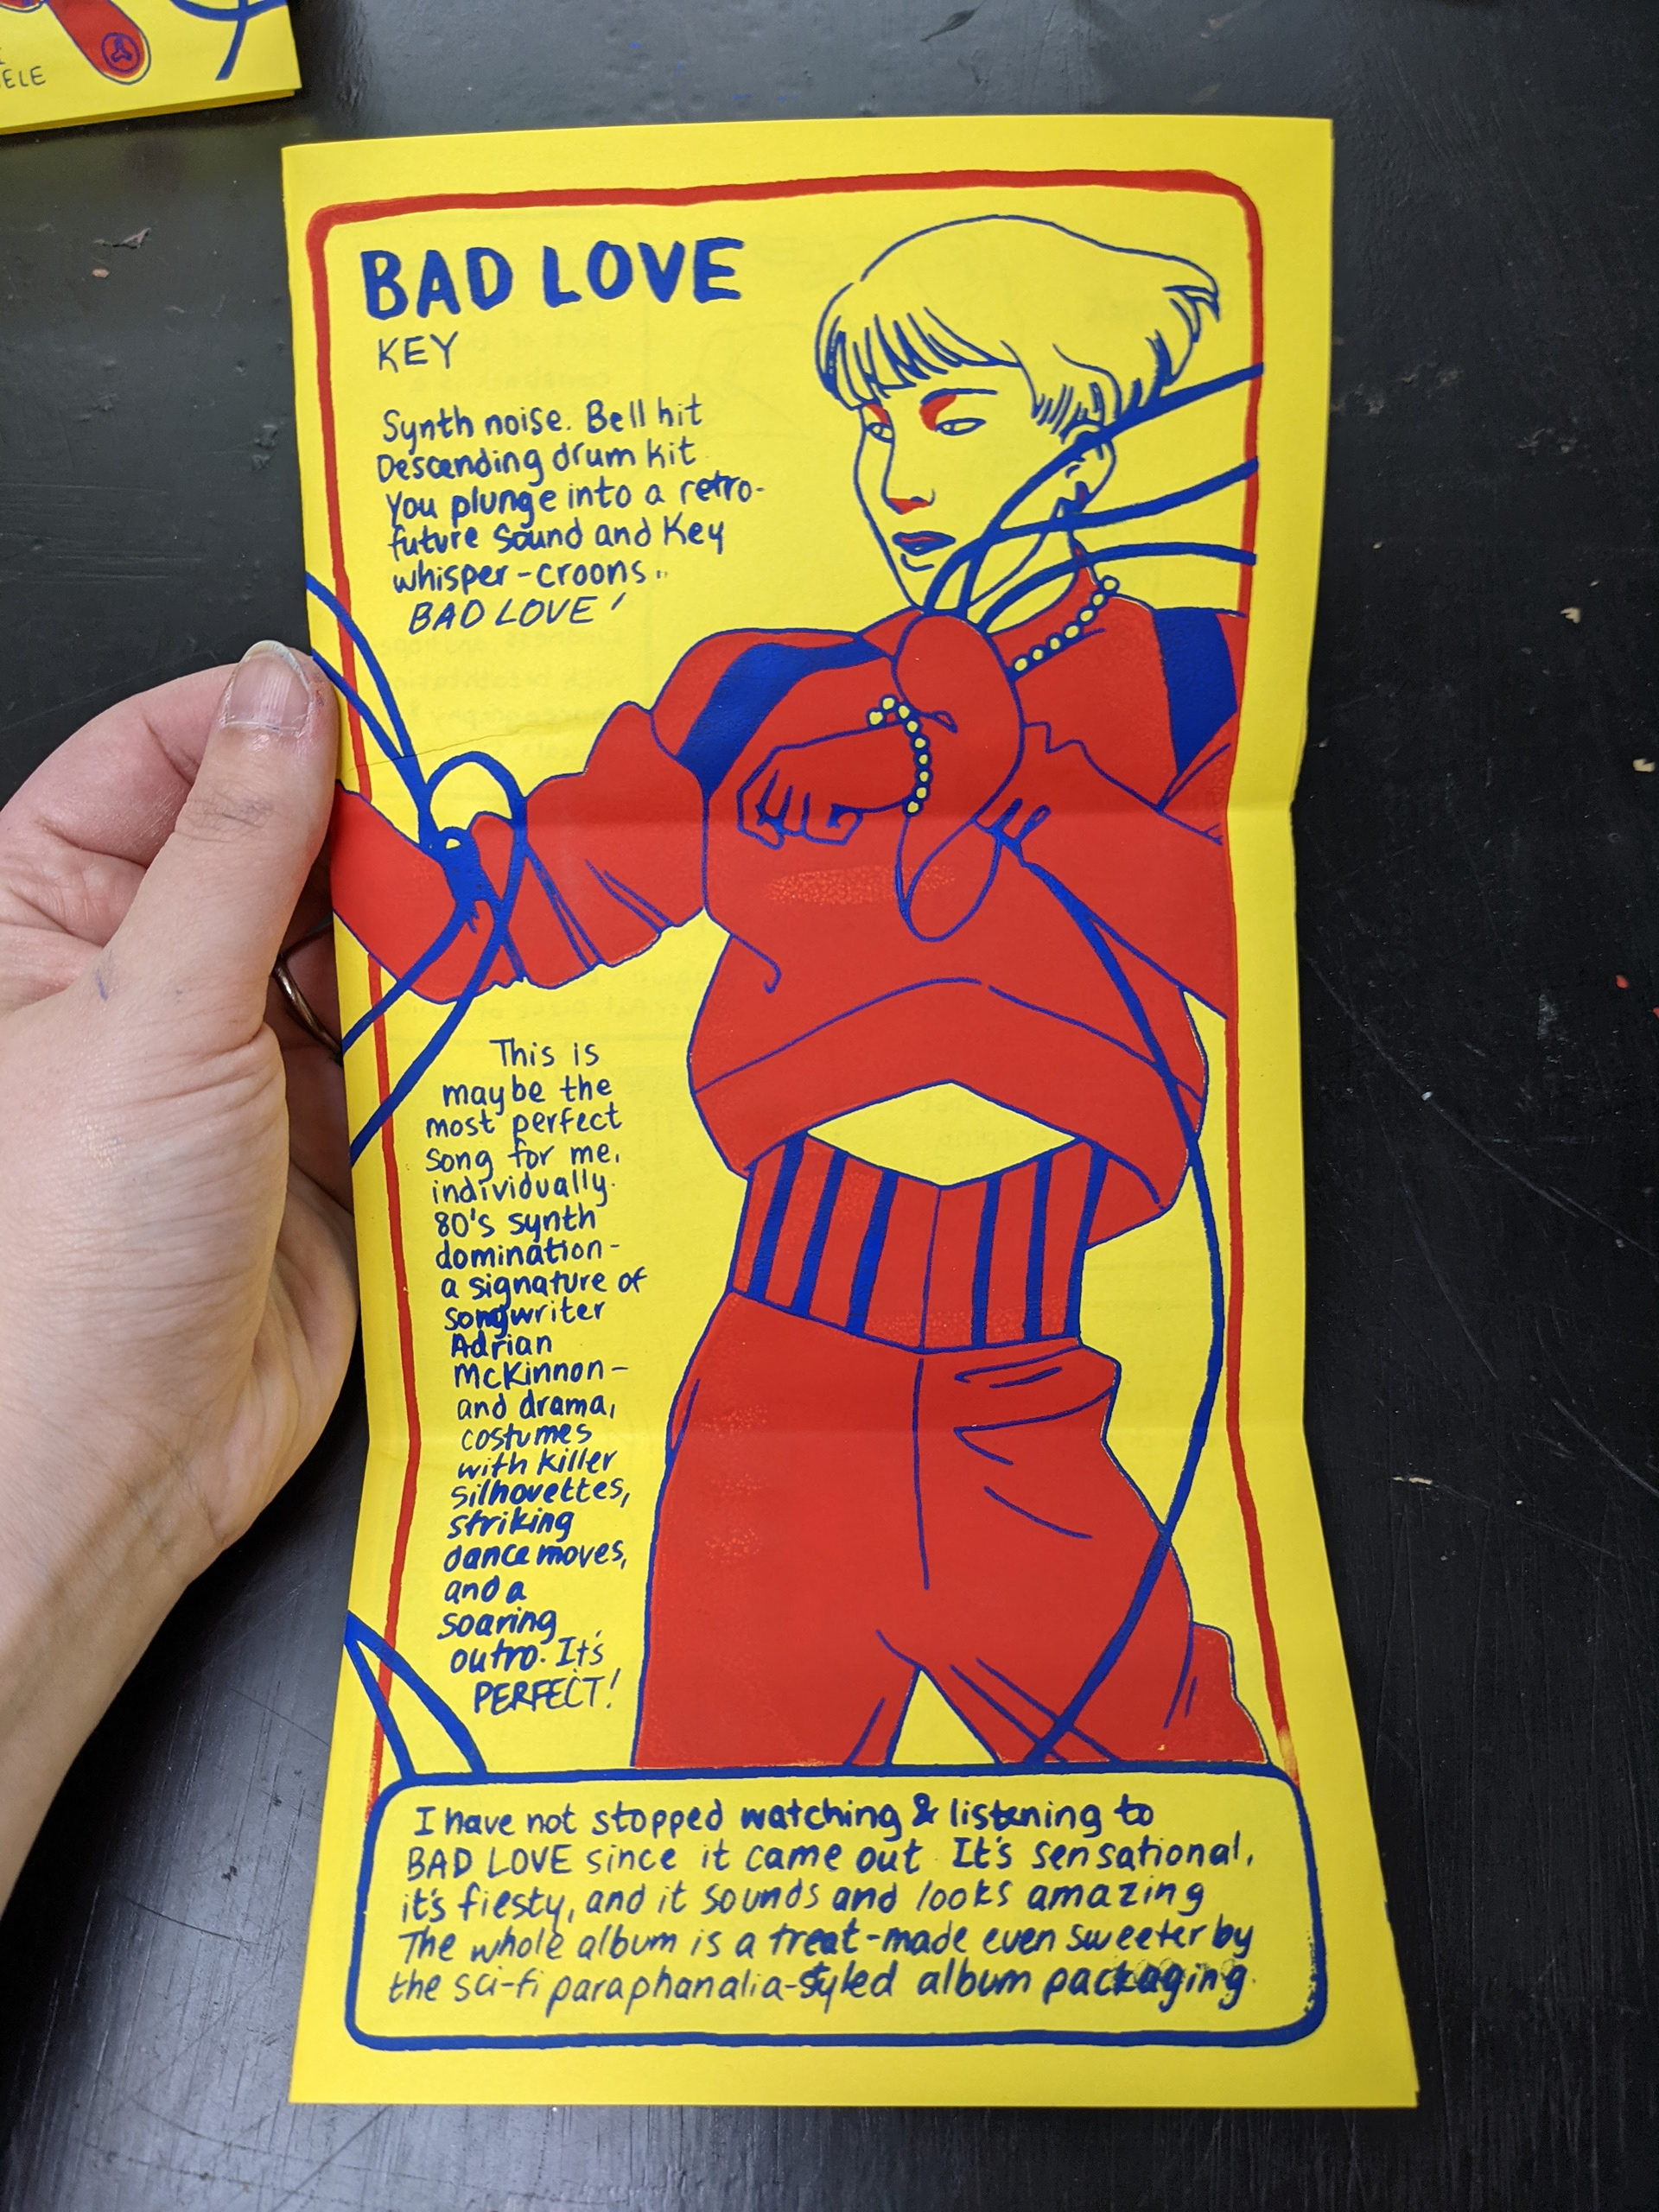 ELE
BAD LOVE
KEY
Synth noise. Bell hit
Descending drum kit
You plunge into a retro-
future sound and Key
whisper-croons..
BAD LOVE'
This is
maybe the
most perfect
song for me,
individually.
80's synth
domination-
a signature of
songwriter
Adrian
McKinnon-
and drama,
costumes
with killer
silhouettes,
striking
dance moves,
and a
soaring
outro. It's
PERFECT!
I have not stopped watching & listening to
BAD LOVE since it came out. It's sensational,
it's fiesty, and it sounds and looks amazing
The whole album is a treat-made even sweeter by
the sci-fi paraphanalia-styled album packaging.